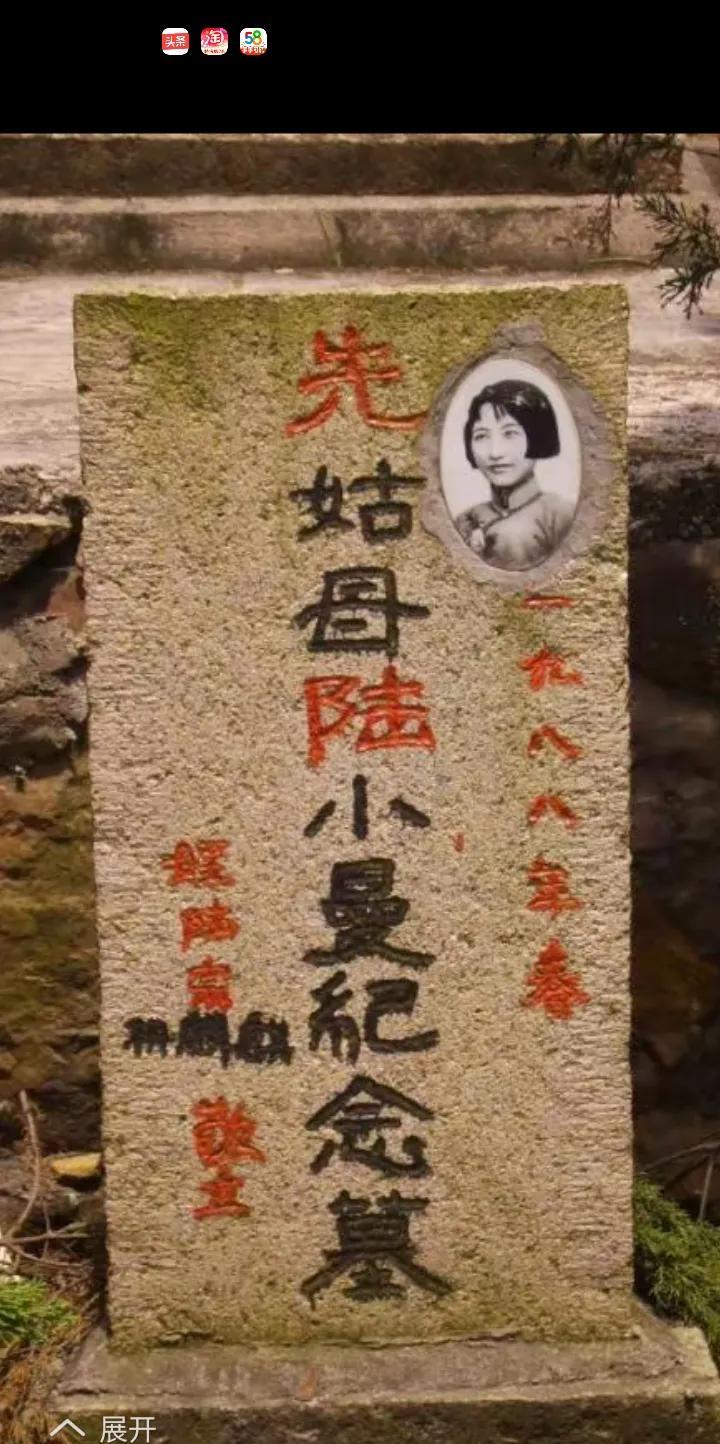 头条
淘
58
一九八八年春
先姑母陆小曼紀念墓
陆宗
麟麒
敬立
展开